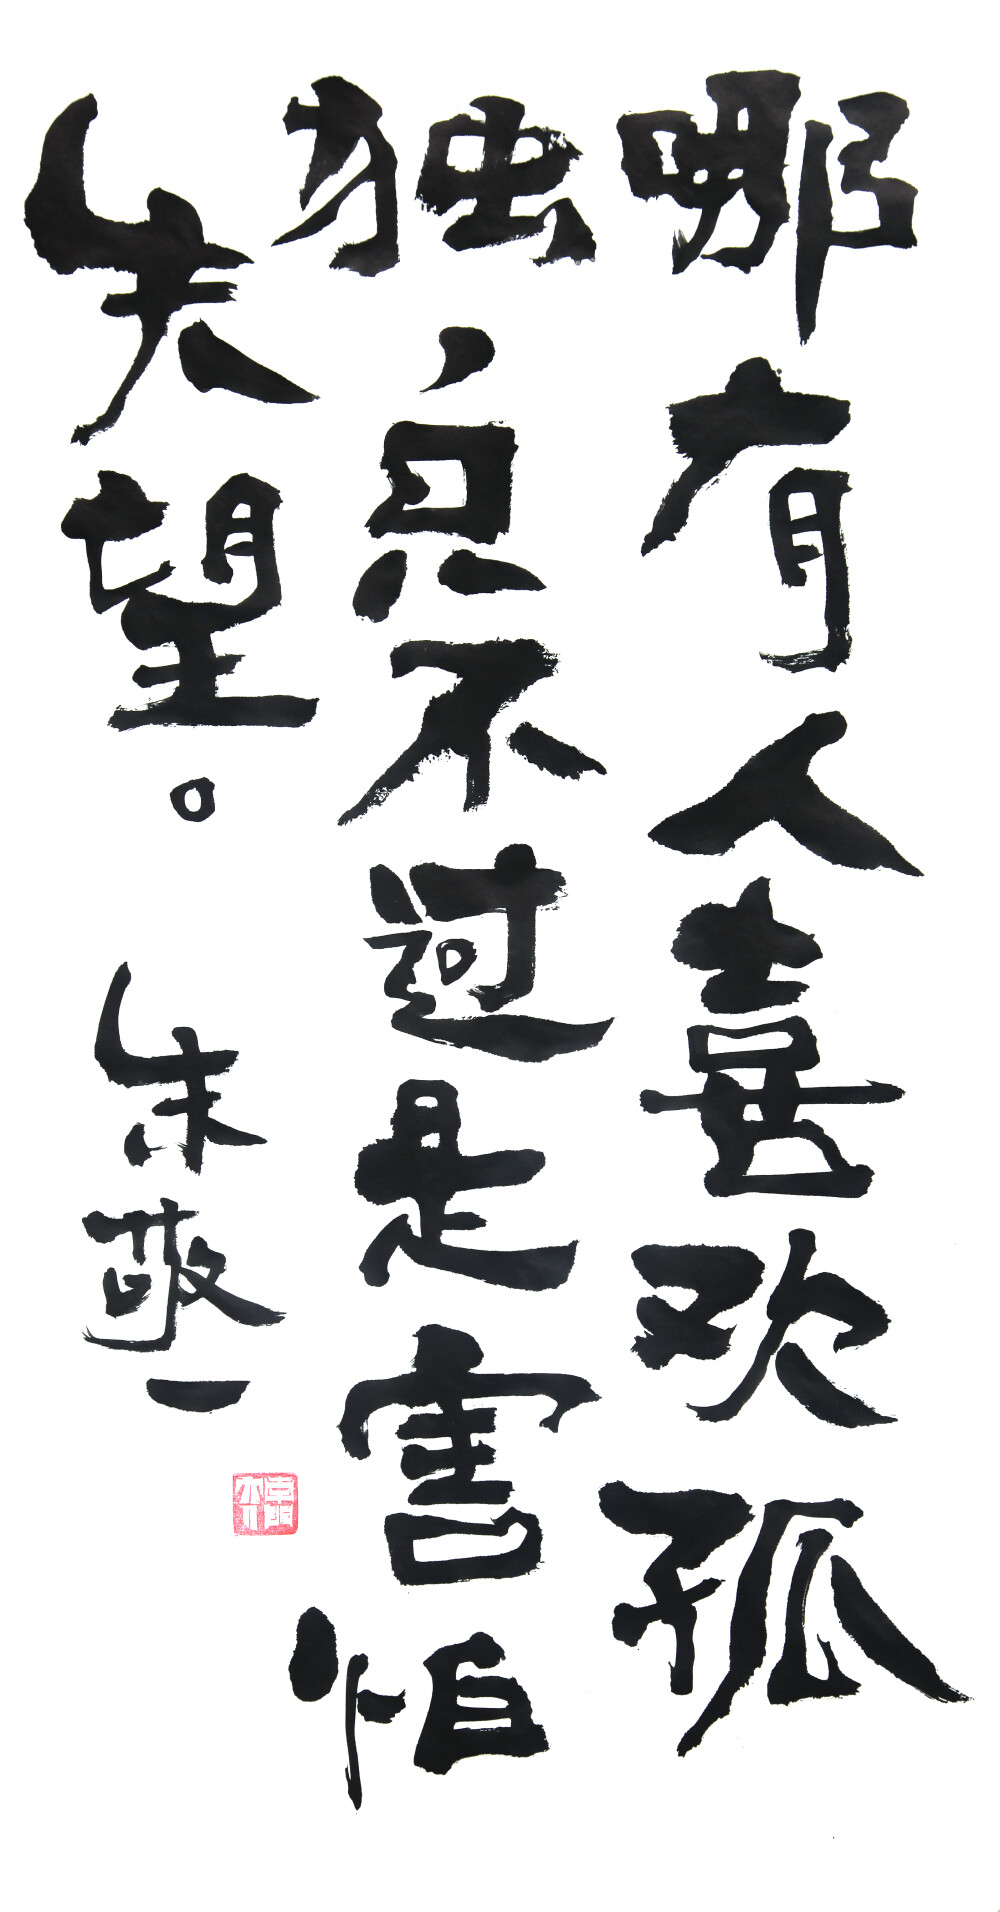 哪有人喜欢孤
独，只不过是害怕
失望。朱敬一